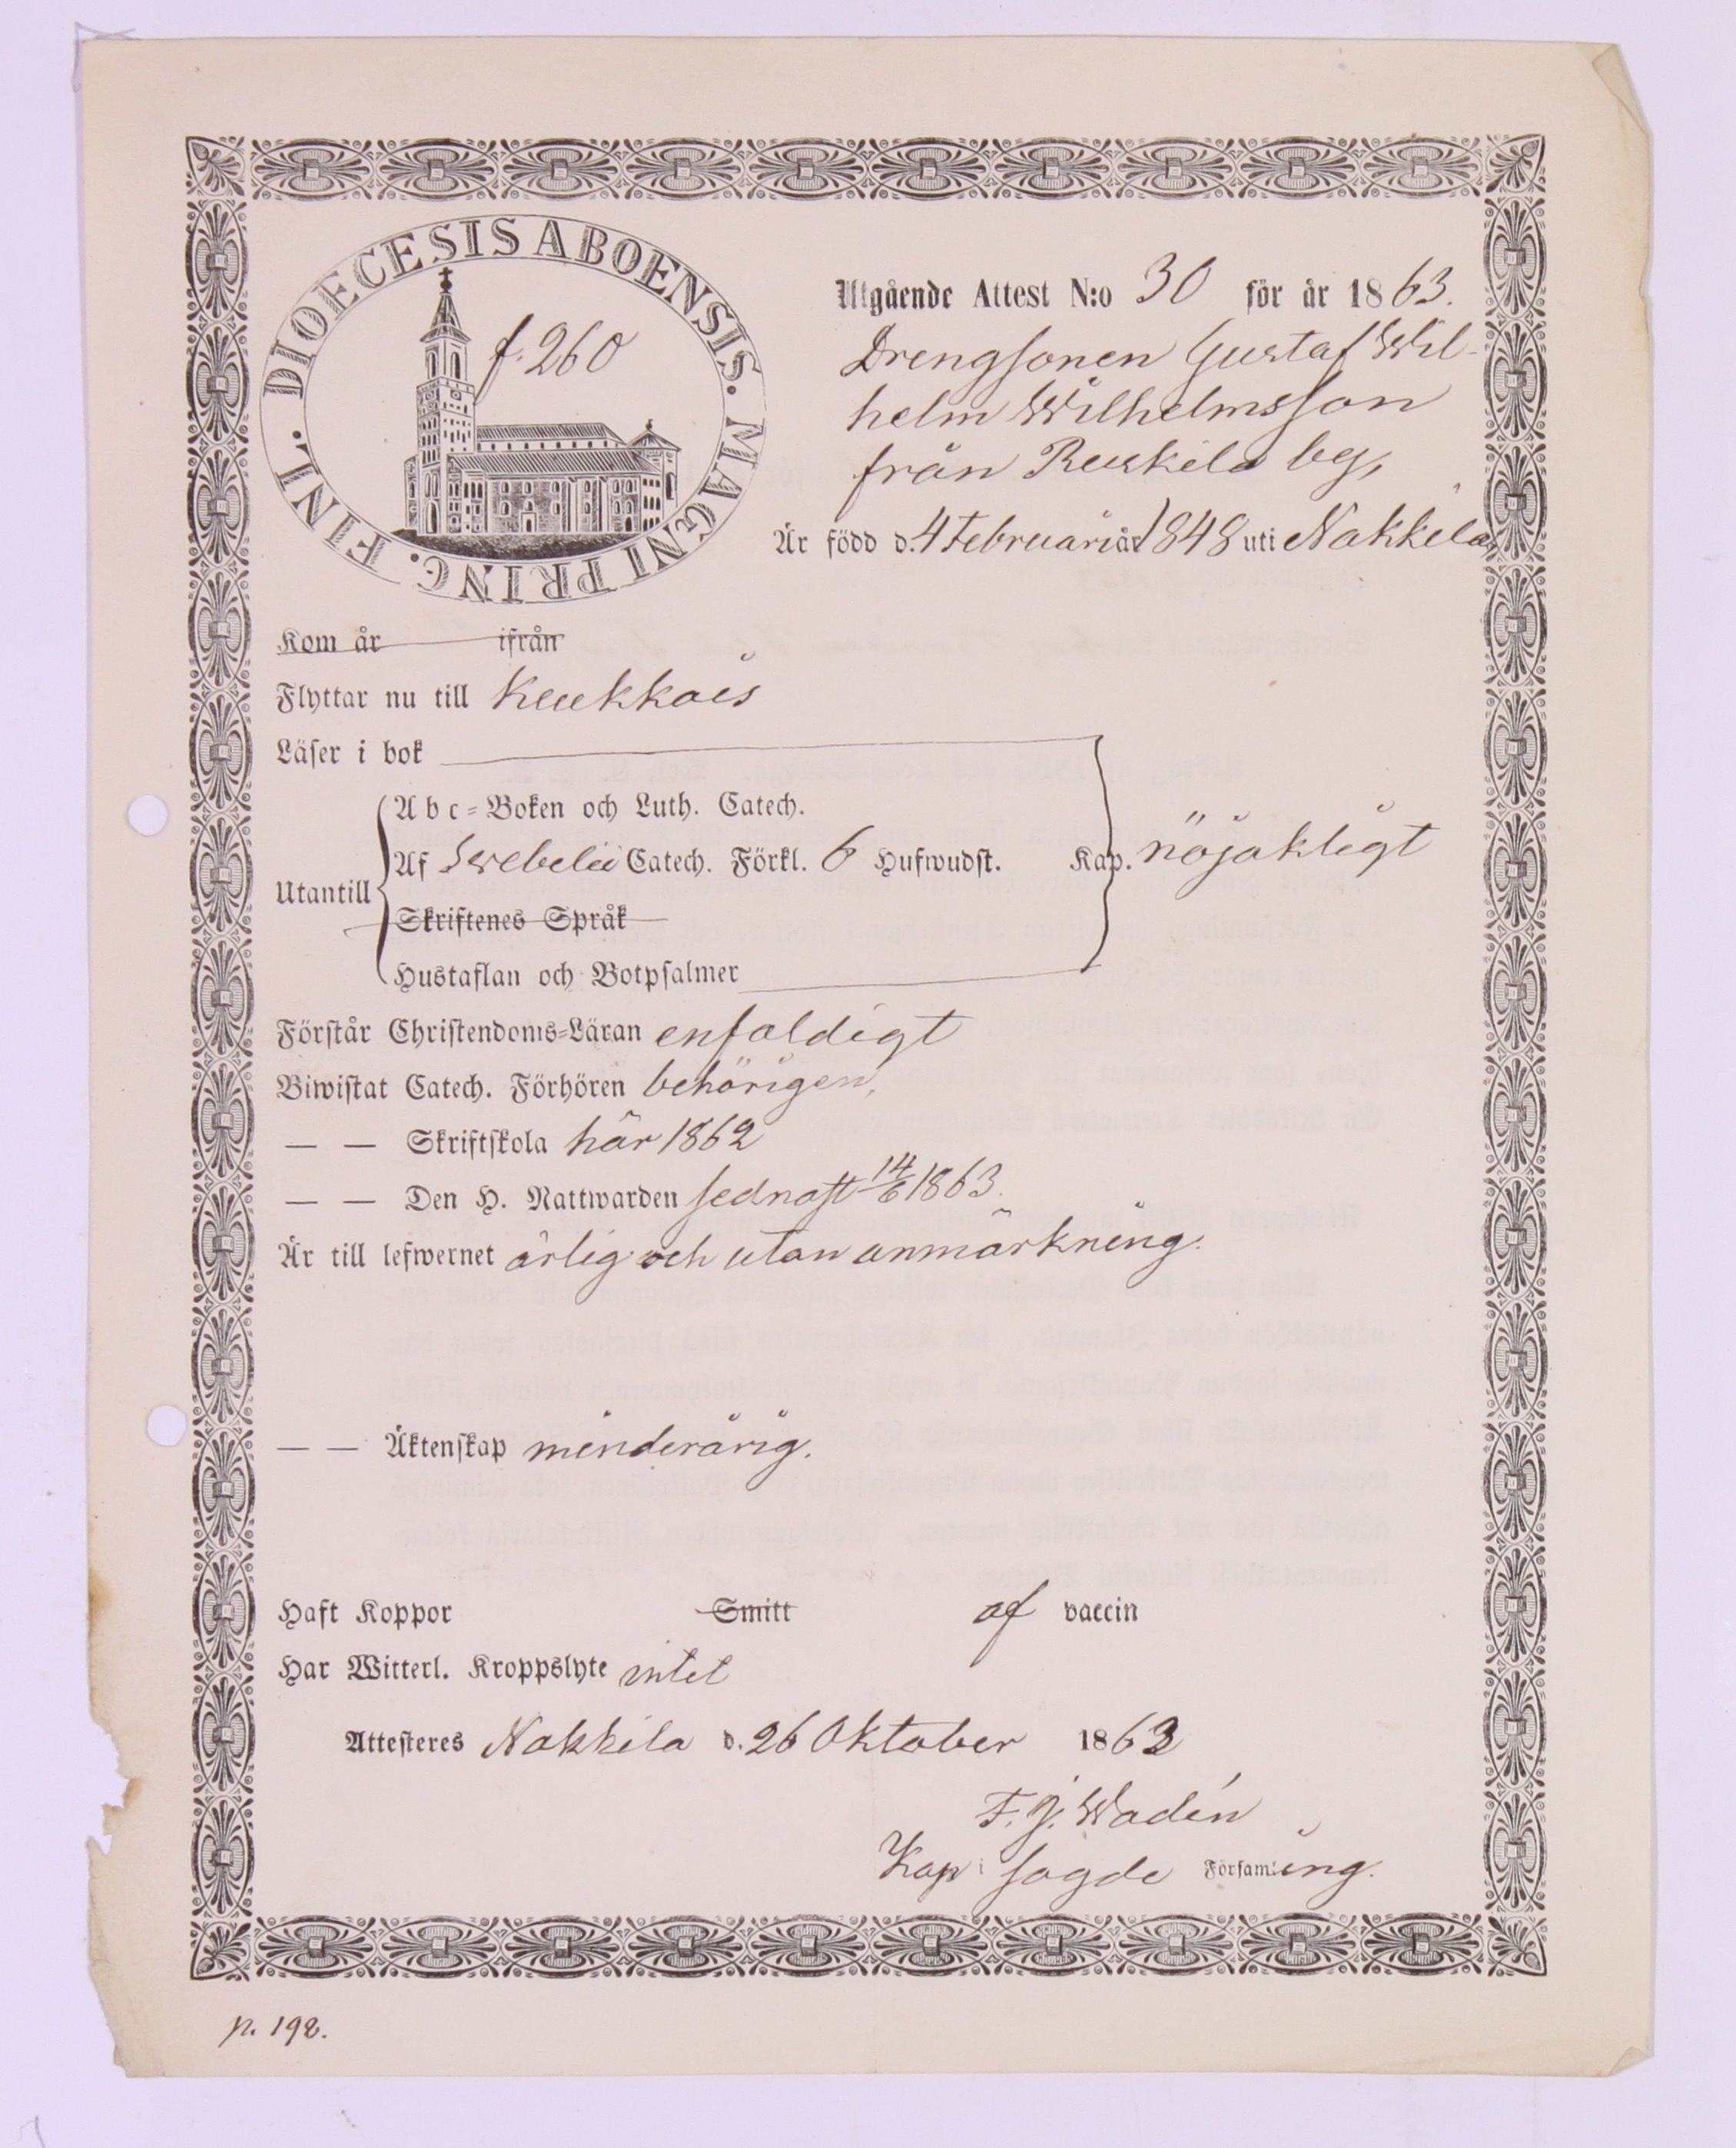 DIOECESIS ABOENSIS. MAGNI PRINC. FINL.
f. 260
Utgående Attest N:o 30 för år 1863.
Drengsonen Gustaf Wil-
helm Wilhelmsson
från Ruskila by,
Är född d. 4 Februari år 1848 uti Nakkila
Kom år ifrån
Flyttar nu till Kukkois
Läser i bok
Utantill
Abc-Boken och Luth. Catech.
Af Svebelii Catech. Förkl. 6 Hufwudst. Kap. nöjakligt
Skriftenes Språk
Hustaflan och Botpsalmer
Förstår Christendoms-Läran enfaldigt
Biwistat Catech. Förhören behörigen,
— — Skriftskola här 1862
— — Den H. Nattwarden sednast 14/6 1863.
Är till lefwernet ärlig och utan anmärkning.
— — Äktenskap minderårig.
Haft Koppor Smitt af vaccin
Har Witterl. Kroppslyte intet
Attesteres Nakkila d. 26 Oktober 1863
F. J. Wadén
Kap i sagde Församling.
p. 198.